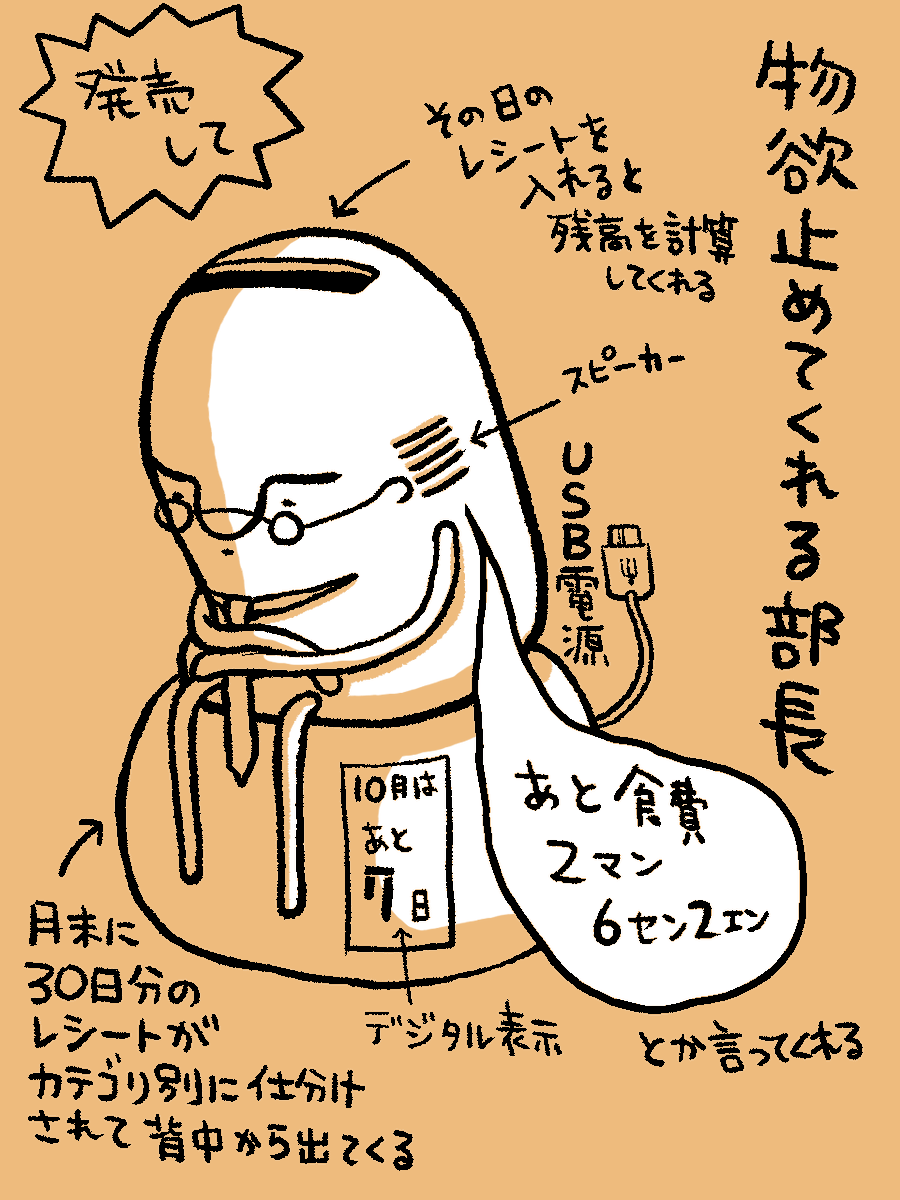 物欲止めてくれる部長
発売
して
その日の
レシートを
入れると
残高を計算
してくれる
スピーカー
USB電源
10月は
あと
7日
デジタル表示
あと食費
2マン
6セン2エン
とか言ってくれる
月末に
30日分の
レシートが
カテゴリ別に仕分け
されて背中から出てくる